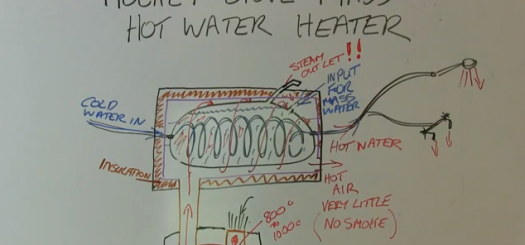 ROCKET STOVE MASS
HOT WATER HEATER
STEAM
OUTLET!!
INPUT
FOR
MASS
WATER
COLD
WATER IN
INSULATION
HOT WATER
HOT
AIR
VERY LITTLE
(NO SMOKE)
800°C
TO
1000°C